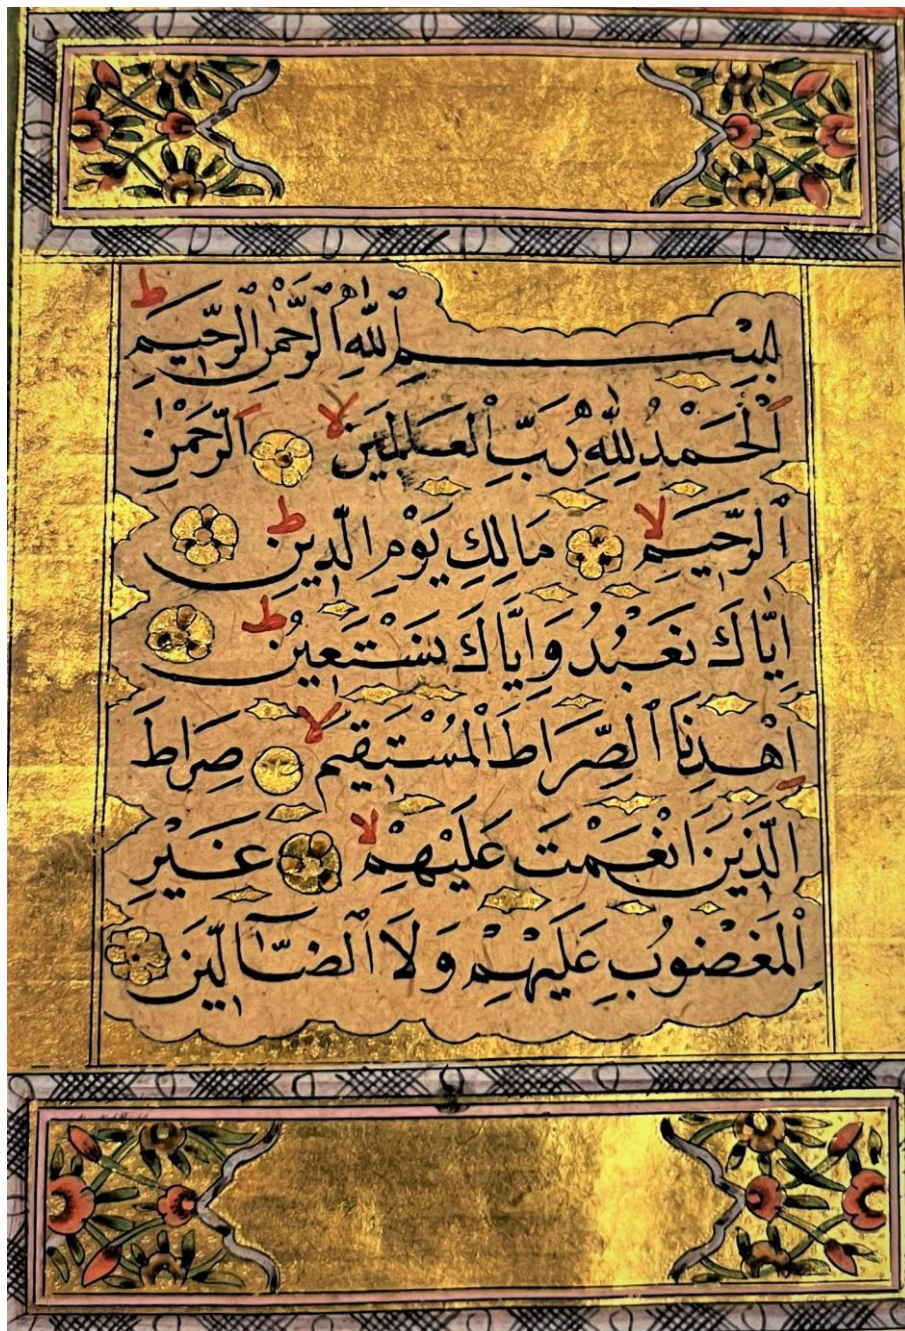 بِسْمِ ٱللّٰهِ ٱلرَّحْمٰنِ ٱلرَّحِيمِ ط
اَلْحَمْدُ لِلّٰهِ رَبِّ ٱلْعَالَمِينَ لا اَلرَّحْمٰنِ
ٱلرَّحِيمِ لا مَالِكِ يَوْمِ الدِّينِ ط
اِيَّاكَ نَعْبُدُ وَاِيَّاكَ نَسْتَعِينُ ط
اِهْدِنَا ٱلصِّرَاطَ ٱلْمُسْتَقِيمَ لا صِرَاطَ
الَّذِينَ اَنْعَمْتَ عَلَيْهِمْ لا غَيْرِ
ٱلْمَغْضُوبِ عَلَيْهِمْ وَلَا ٱلضَّٓالِّينَ